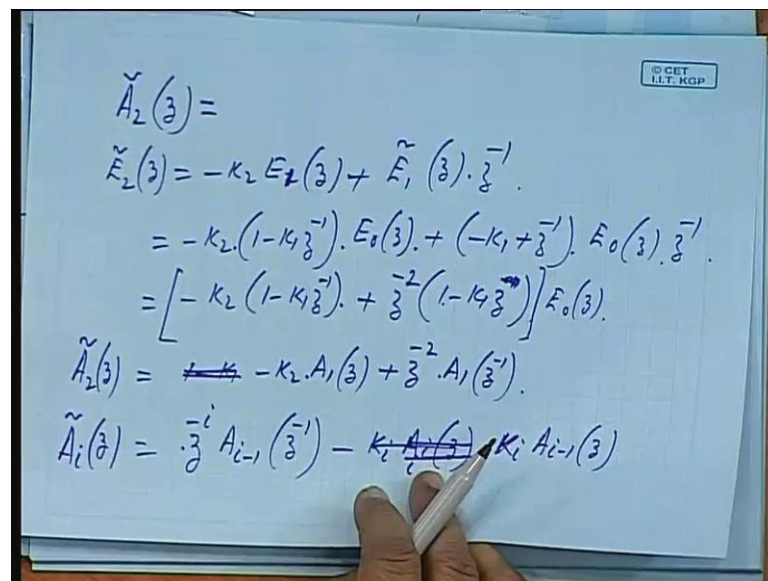 © CET
I.I.T. KGP
Ã₂(z) =
Ẽ₂(z) = -K₂ E₁(z) + Ẽ₁(z).z⁻¹.
= -K₂.(1-K₁z⁻¹).E₀(z). + (-K₁+z⁻¹). E₀(z).z⁻¹.
= [-K₂(1-K₁z⁻¹). + z⁻²(1-K₁z)]E₀(z).
Ã₂(z) = -K₂.A₁(z) + z⁻².A₁(z⁻¹).
Ãᵢ(z) = .z⁻ⁱ Aᵢ₋₁(z⁻¹) - Kᵢ Aᵢ₋₁(z)